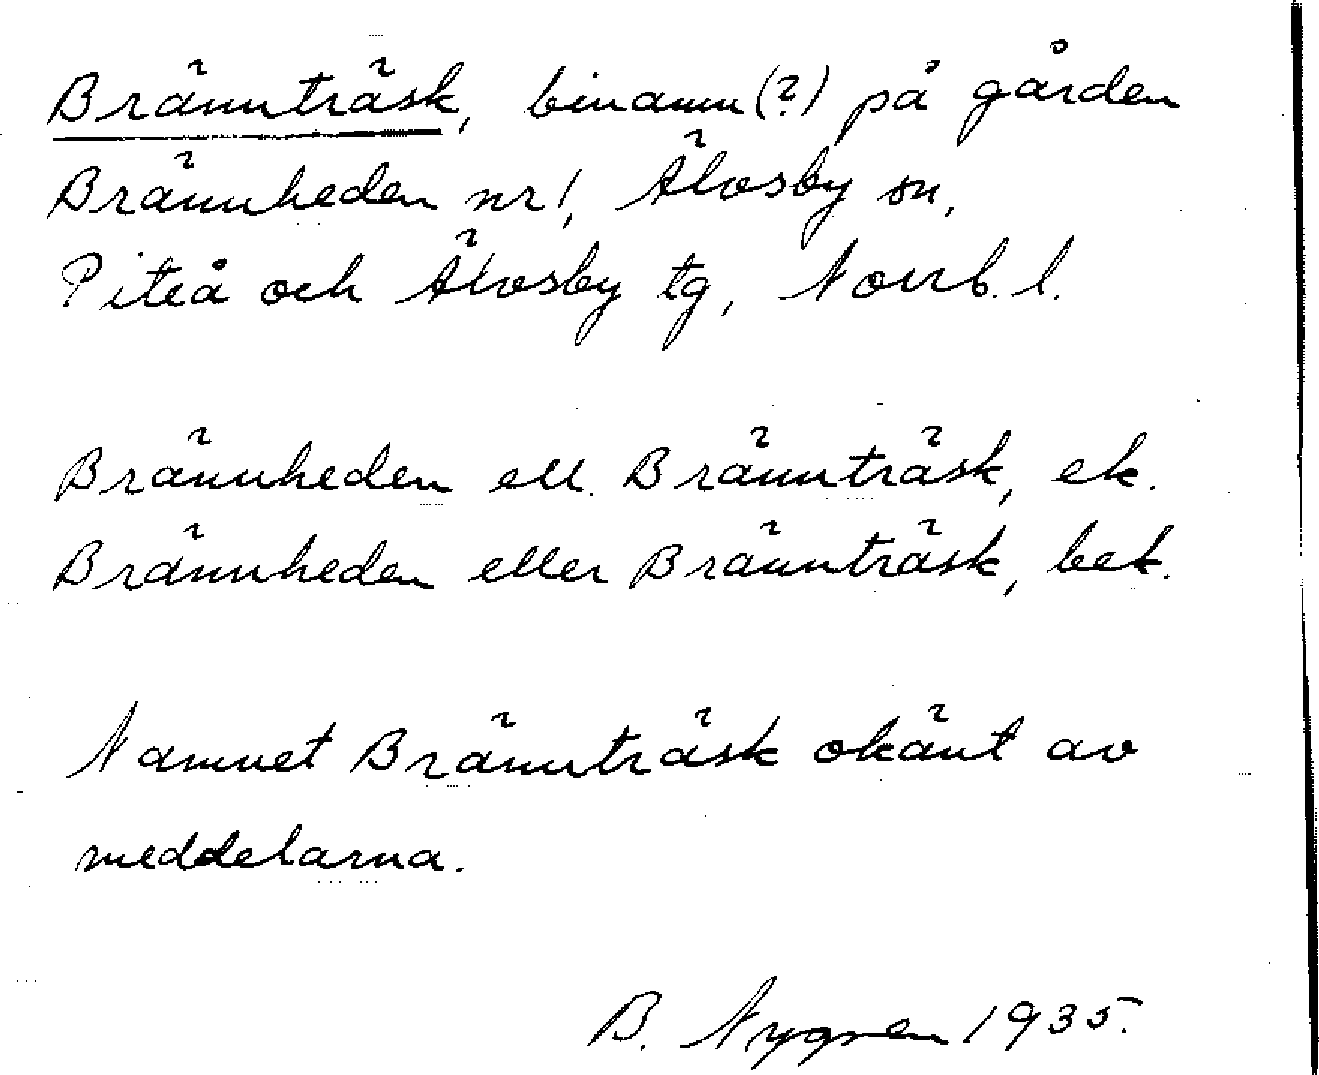 Brännträsk, binamn (?) på gården
Brännheden nr 1, Älvsby sn,
Piteå och Älvsby tg, Norrb. l.
Brännheden ell. Brännträsk, ek.
Brännheden eller Brännträsk, bek.
Namnet Brännträsk okänt av
meddelarna.
B. Nygren 1935.